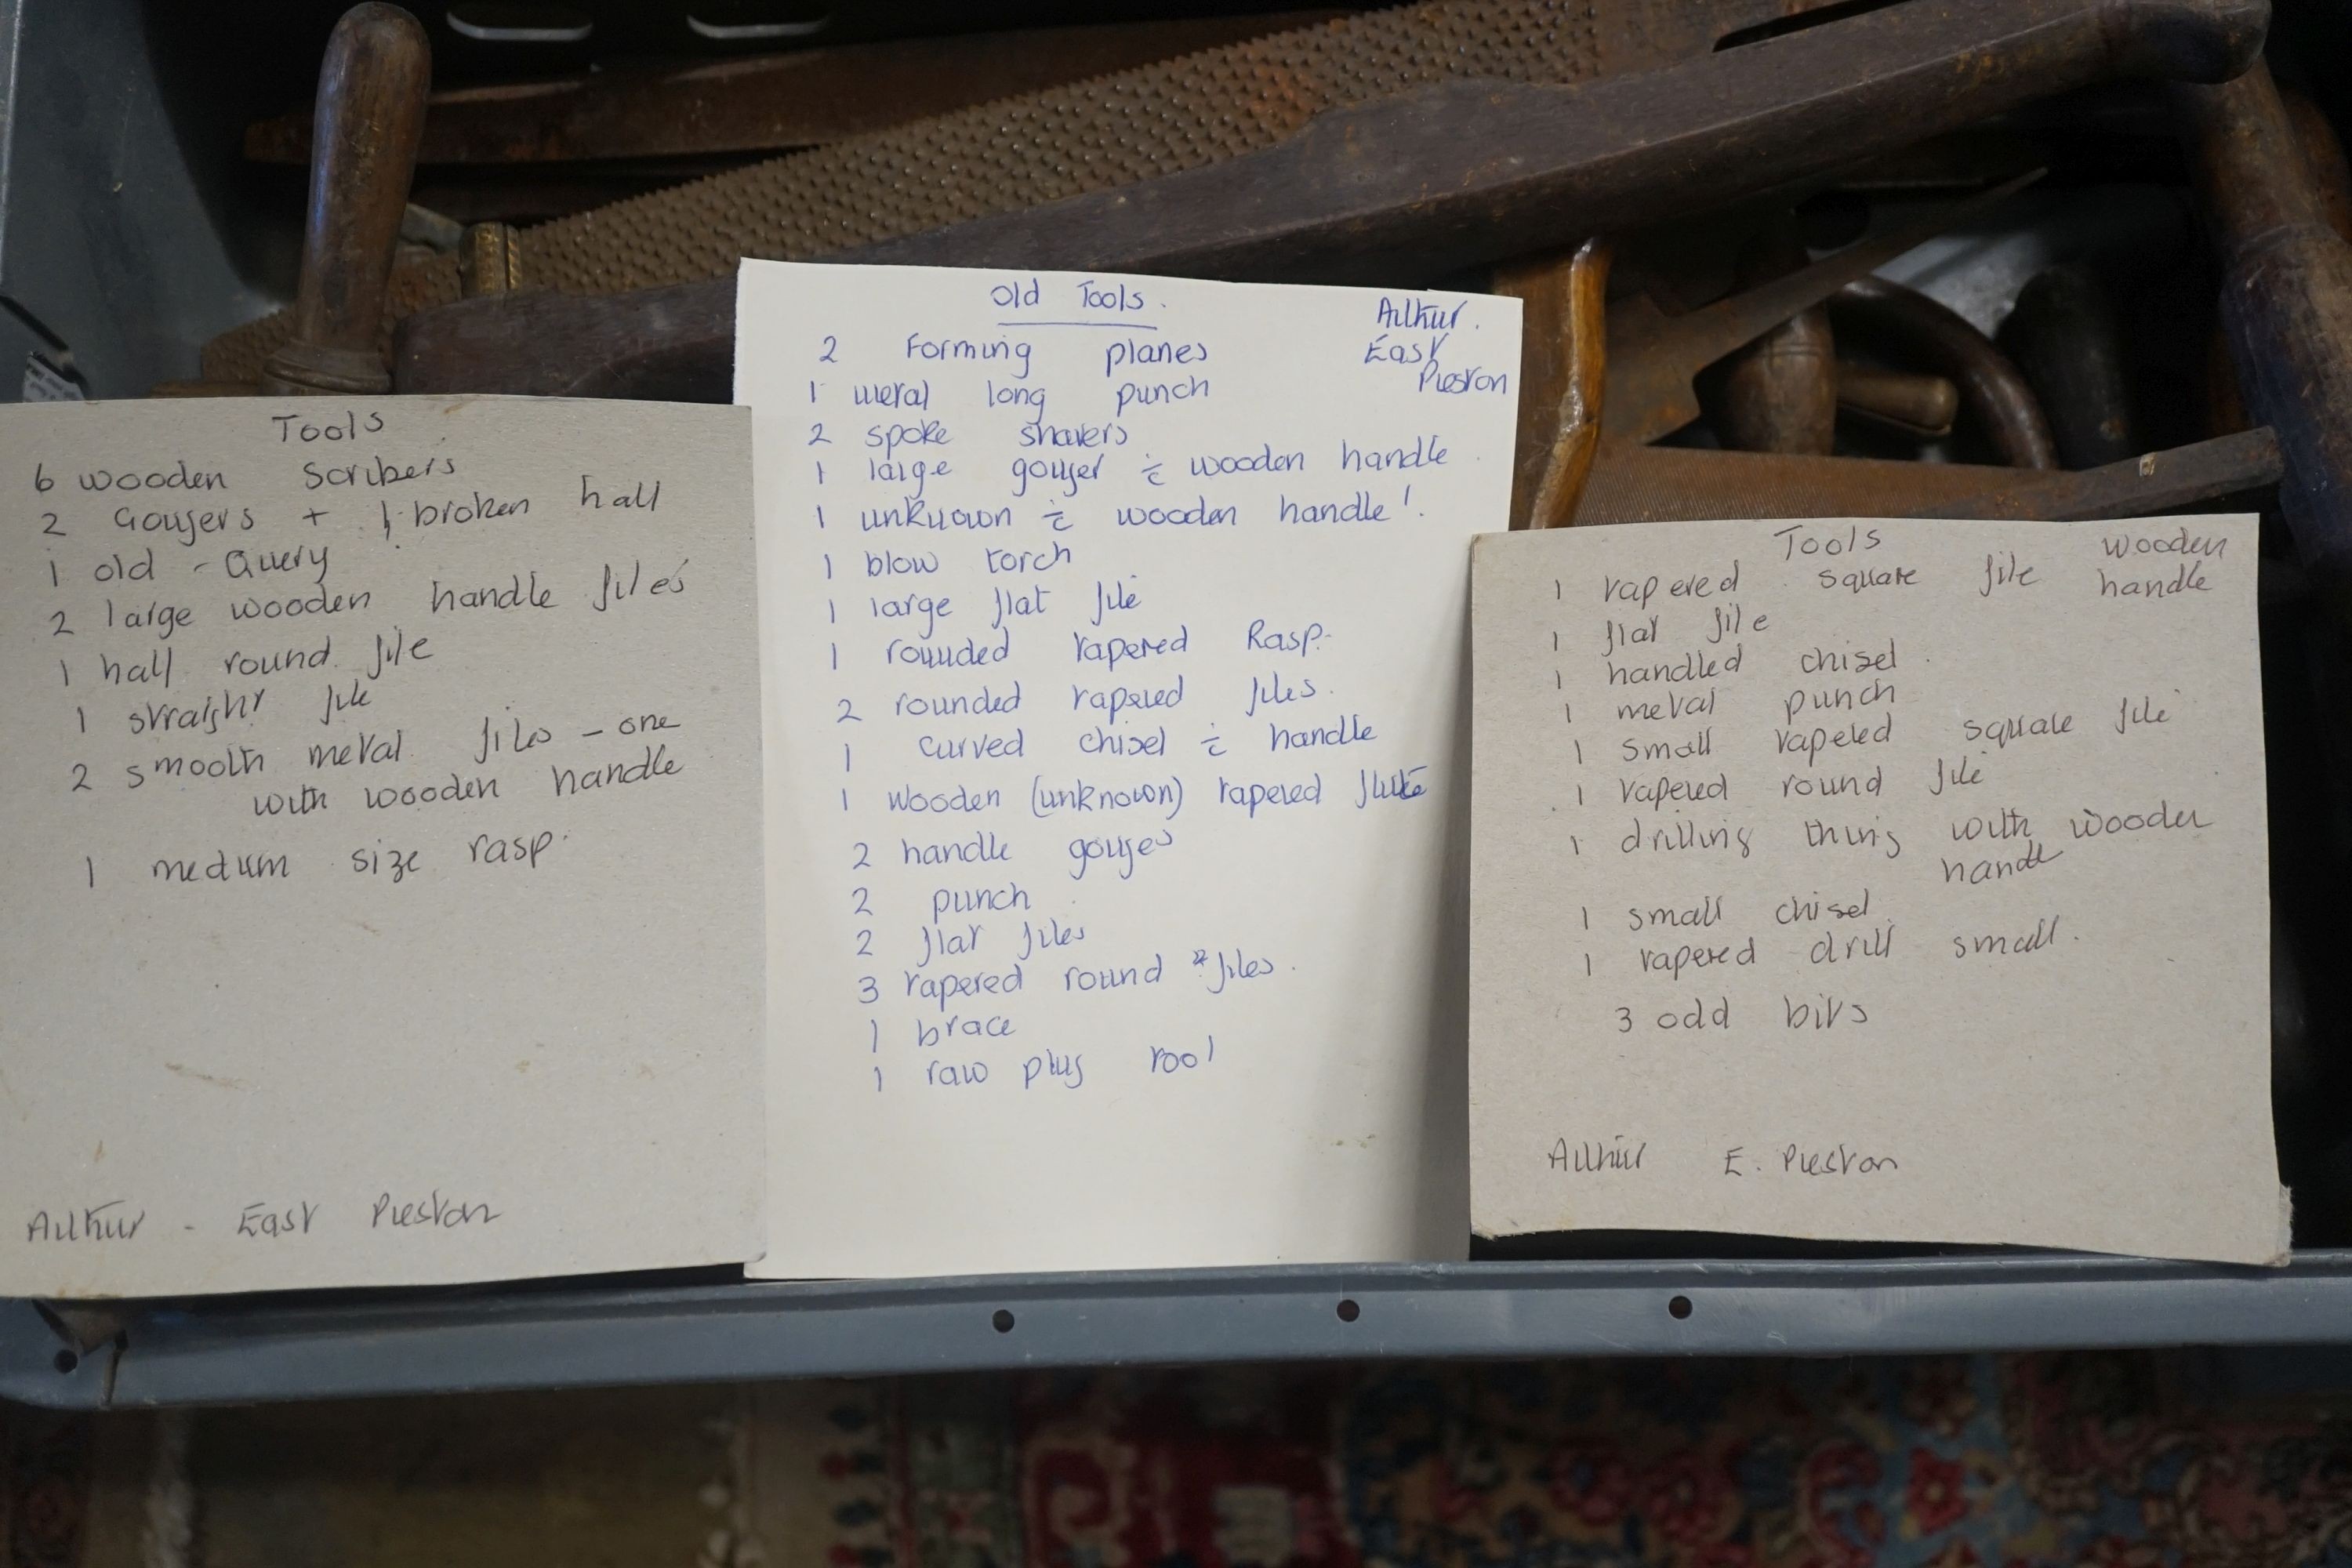 Tools
6 wooden scribers
2 Gougers + 1 broken half
1 old - Query
2 large wooden handle files
1 half round file
1 straight file
2 smooth metal files - one
with wooden handle
1 medium size rasp.
Arthur - East Preston
Old Tools.
Arthur.
East
Preston
2 Forming planes
1 metal long punch
2 spoke shavers
1 large gouger c̄ wooden handle.
1 unknown c̄ wooden handle!.
1 blow torch
1 large flat file
1 rounded tapered Rasp.
2 rounded tapered files.
1 curved chisel c̄ handle
1 wooden (unknown) tapered flute
2 handle gouges
2 punch
2 flat files
3 tapered round files.
1 brace
1 raw plug tool
Tools
1 tapered square file wooden
handle
1 flat file
1 handled chisel.
1 metal punch
1 small tapered square file
1 tapered round file
1 drilling thing with wooden
handle
1 small chisel
1 tapered drill small.
3 odd bits
Arthur E. Preston